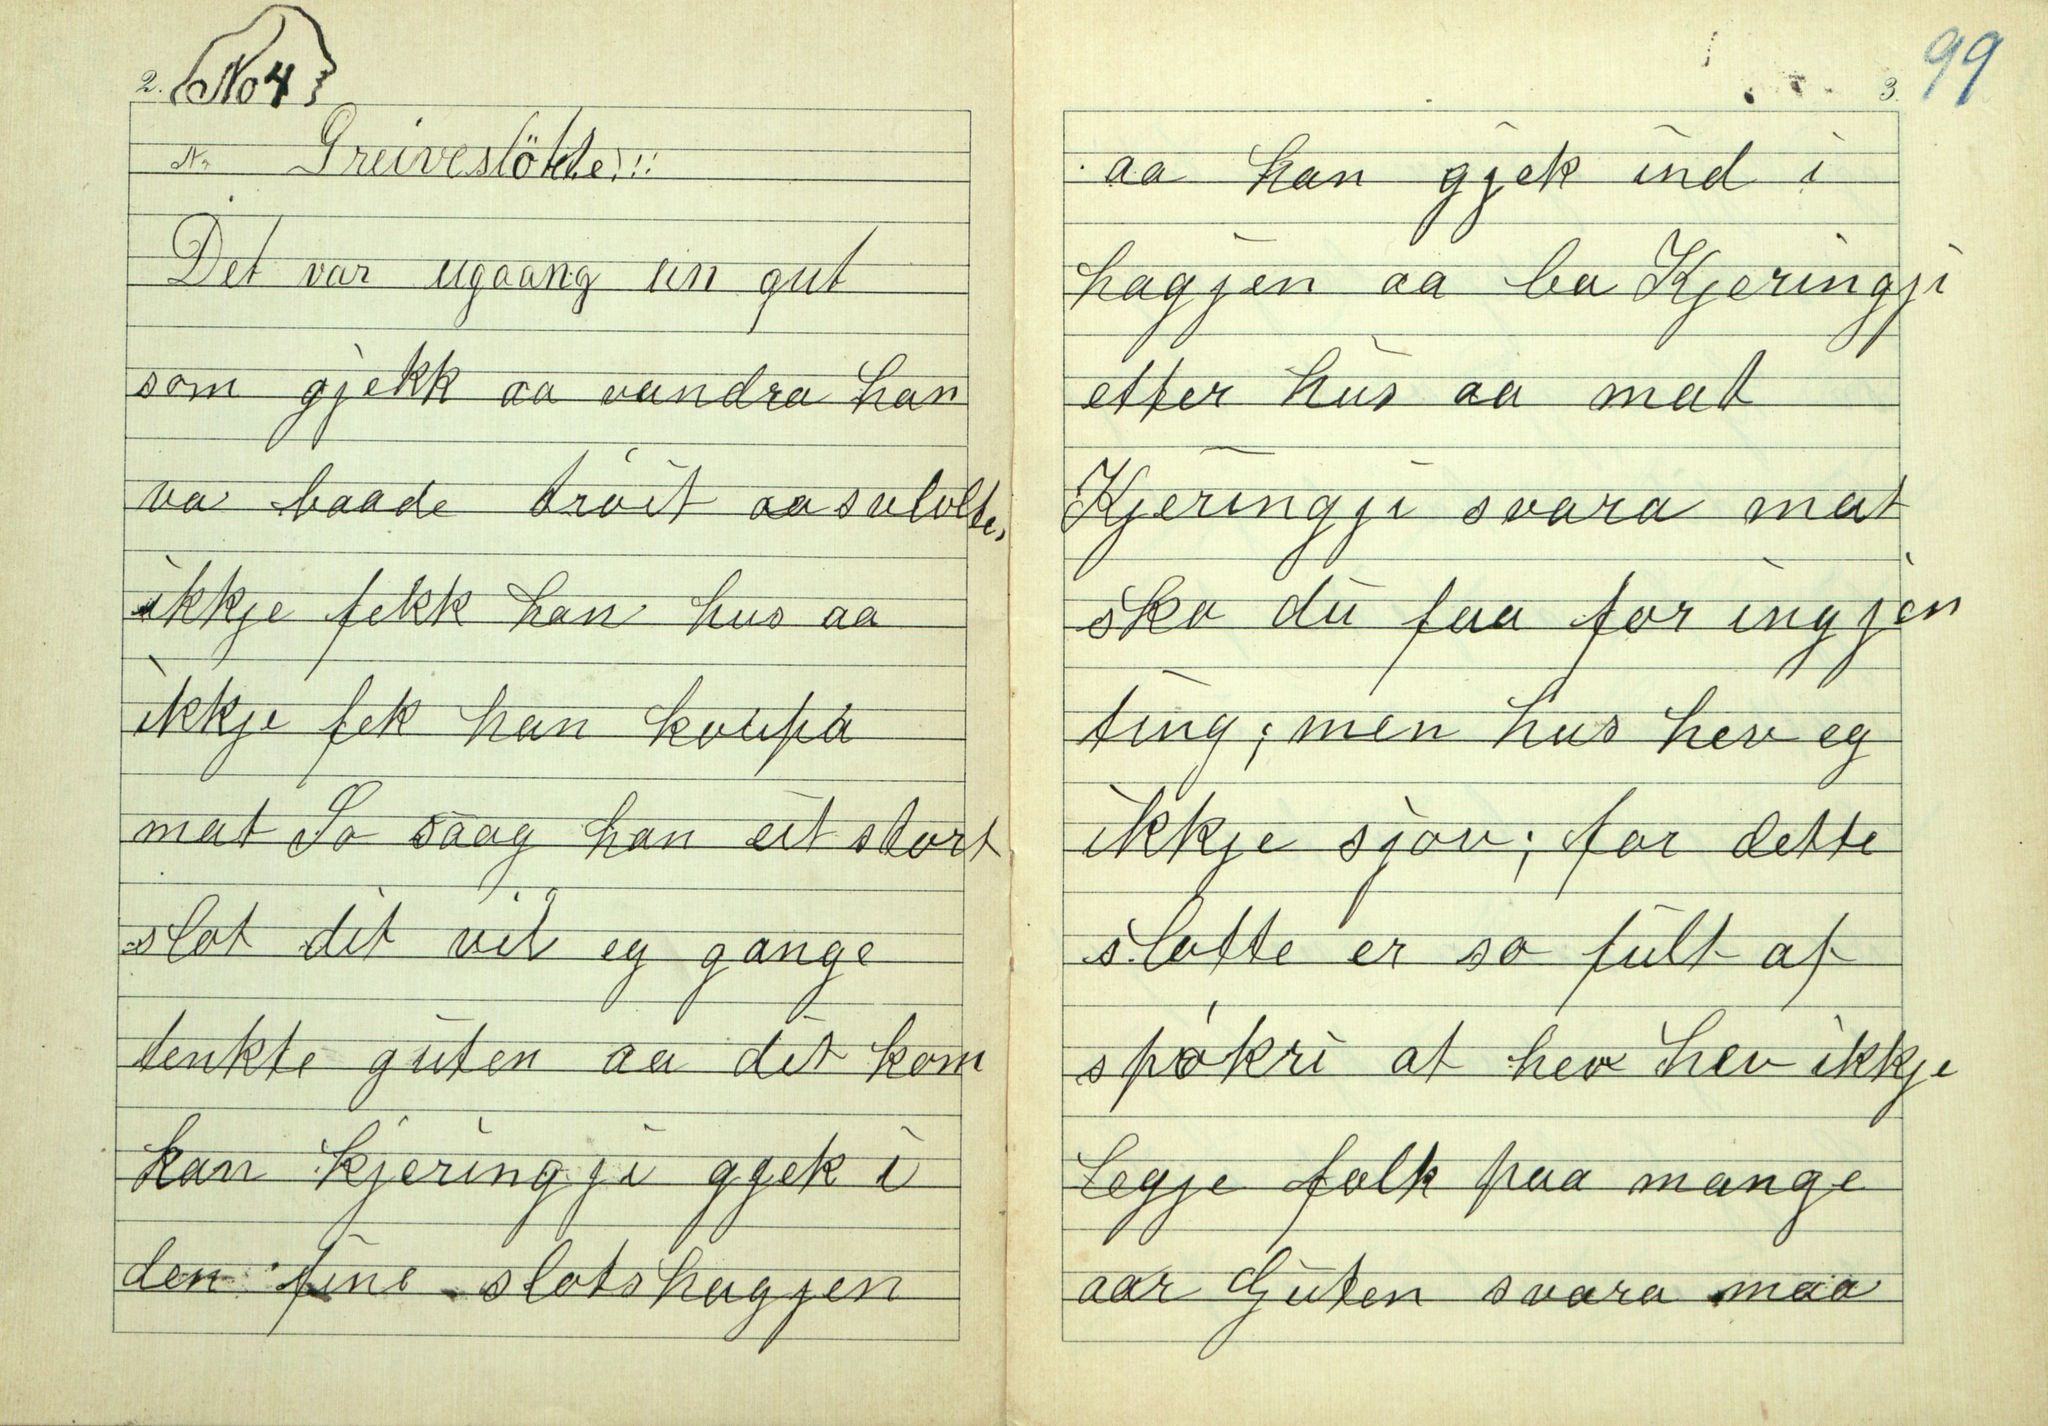 2. No 4
No Greiveslökte!!!
Det var eigaang ein gut
som gjekk aa vandra han
va baade tröit aa svolte,
ikkje fekk han hus aa
ikkje fek han koupa
mat So saag han eit stort
slot dit vil eg gange
tenkte guten aa dit kom
han kjeringji gjek i
den fine slotshagjen
3. 99
aa han gjek ind i
hagjen aa ba Kjeringji
etter hus aa mat
Kjeringji svara mat
ska du faa for ingjen
ting; men hus hev eg
ikkje sjov; for dette
slotte er so fult af
spökri at her hev ikkje
legje folk paa mange
aar Guten svara maa